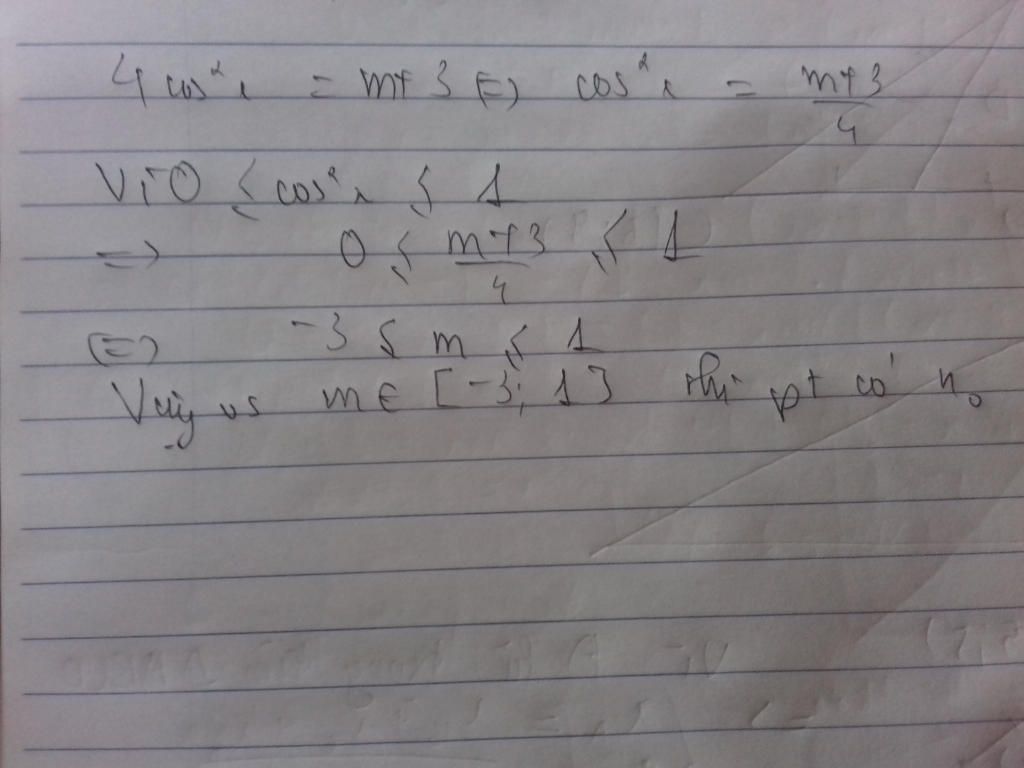 4 cos²x = m+3 (=) cos²x = \frac{m+3}{4}
Vì 0 ≤ cos²x ≤ 1
=> 0 ≤ \frac{m+3}{4} ≤ 1
(=) -3 ≤ m ≤ 1
Vậy vs m ∈ [-3; 1] thì pt có n₀